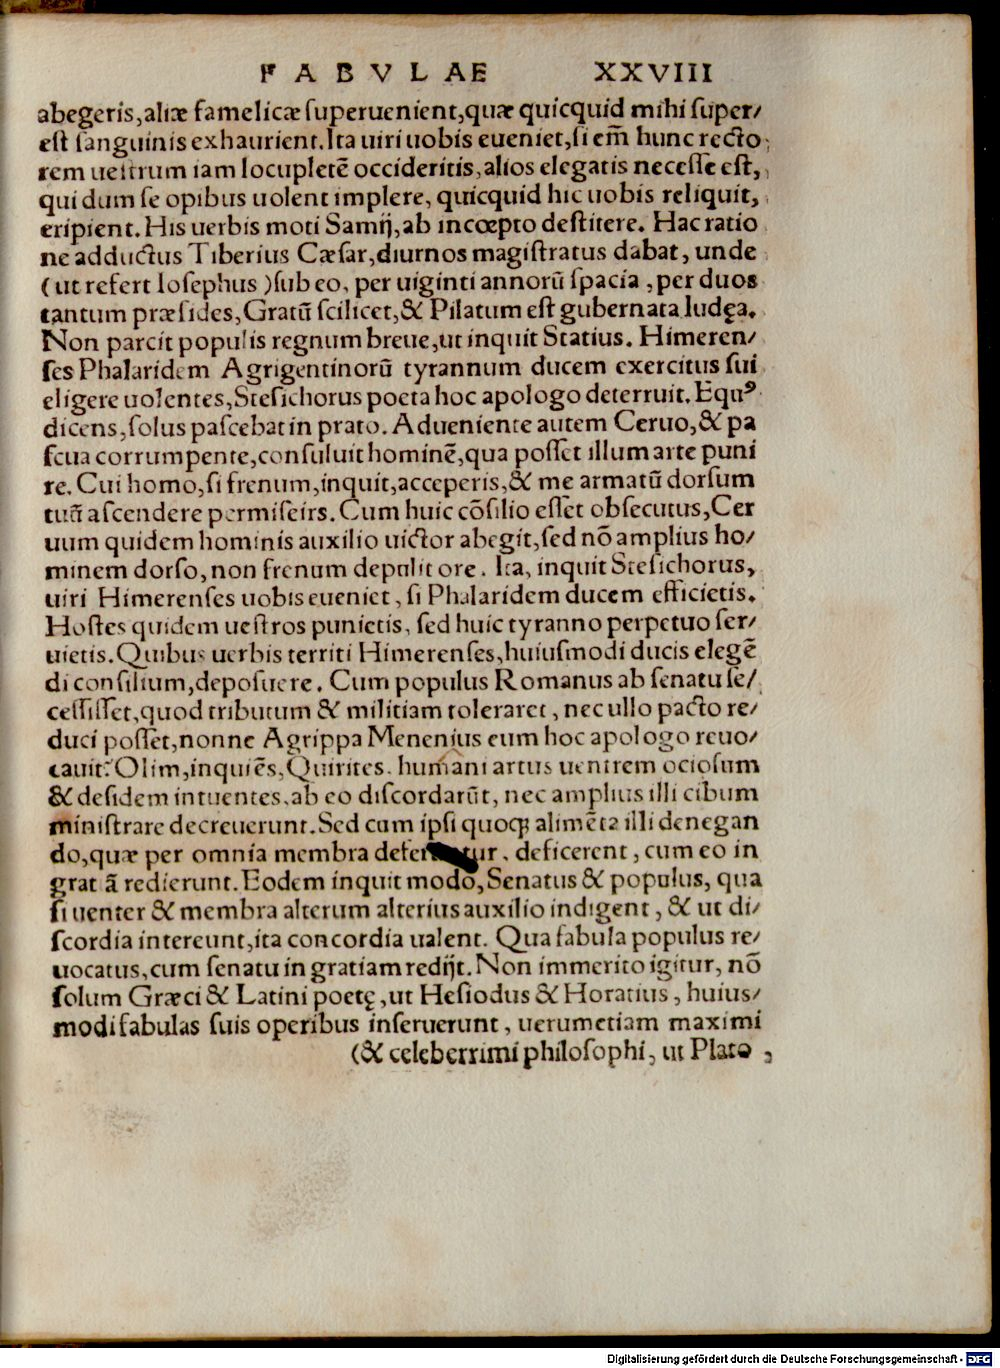 FABVLAE XXVIII
abegeris, aliæ famelicæ ſuperuenient, quæ quicquid mihi ſuper/
eſt ſanguinis exhaurient. Ita uiri uobis eueniet, ſi em̃ hunc recto
rem ueſtrum iam locupletẽ occideritis, alios elegatis neceſſe eſt,
qui dum ſe opibus uolent implere, quicquid hic uobis reliquit,
eripient. His uerbis moti Samij, ab incœpto deſtitere. Hac ratio
ne adductus Tiberius Cæſar, diurnos magiſtratus dabat, unde
(ut refert Ioſephus) ſub eo, per uiginti annorũ ſpacia, per duos
tantum præſides, Gratũ ſcilicet, & Pilatum eſt gubernata Iudęa.
Non parcit populis regnum breue, ut inquit Statius. Himeren/
ſes Phalaridem Agrigentinorũ tyrannum ducem exercitus ſui
eligere uolentes, Steſichorus poeta hoc apologo deterruit. Equꝰ
dicens, ſolus paſcebat in prato. Adueniente autem Ceruo, & pa
ſcua corrumpente, conſuluit hominẽ, qua poſſet illum arte puni
re. Cui homo, ſi frenum, inquit, acceperis, & me armatũ dorſum
tuũ aſcendere permiſeirs. Cum huic cõſilio eſſet obſecutus, Cer
uum quidem hominis auxilio uictor abegit, ſed nõ amplius ho/
minem dorſo, non frenum depulit ore. Ita, inquit Steſichorus,
uiri Himerenſes uobis eueniet, ſi Phalaridem ducem efficietis.
Hoſtes quidem ueſtros punietis, ſed huic tyranno perpetuo ſer/
uietis. Quibus uerbis territi Himerenſes, huiuſmodi ducis elegẽ
di conſilium, depoſuere. Cum populus Romanus ab ſenatu ſe/
ceſſiſſet, quod tributum & militiam toleraret, nec ullo pacto re/
duci poſſet, nonne Agrippa Menenius eum hoc apologo reuo/
cauit? Olim, inquiẽs, Quirites, humani artus uentrem ocioſum
& deſidem intuentes, ab eo diſcordarũt, nec amplius illi cibum
miniſtrare decreuerunt. Sed cum ipſi quoqꝫ alimẽta illi denegan
do, quæ per omnia membra deficerent, cum eo in
grat ã redierunt. Eodem inquit modo, Senatus & populus, qua
ſi uenter & membra alterum alterius auxilio indigent, & ut di/
ſcordia intereunt, ita concordia ualent. Qua fabula populus re/
uocatus, cum ſenatu in gratiam redijt. Non immerito igitur, nõ
ſolum Græci & Latini poetę, ut Heſiodus & Horatius, huius/
modi fabulas ſuis operibus inſeruerunt, uerumetiam maximi
(& celeberrimi philoſophi, ut Plato,
Digitalisierung gefördert durch die Deutsche Forschungsgemeinschaft - DFG